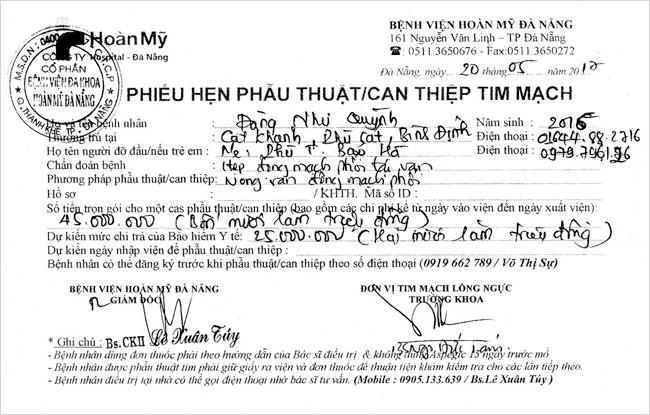 BỆNH VIỆN HOÀN MỸ ĐÀ NẴNG
161 Nguyễn Văn Linh – TP Đà Nẵng
☎: 0511.3650676 - Fax:0511.3650272
Đà Nẵng, ngày...20 tháng 05 năm 2017
Hoàn Mỹ
Hospital - Đà Nẵng
M.S.D.N: 0400
CÔNG TY
CỔ PHẦN
BỆNH VIỆN ĐA KHOA
HOÀN MỸ ĐÀ NẴNG
Q. THANH KHÊ - TP. ĐÀ NẴNG
PHIẾU HẸN PHẪU THUẬT/CAN THIỆP TIM MẠCH
Họ và tên bệnh nhân Đặng Như Quỳnh Năm sinh : 2016
Thường trú tại : Cát Khánh, Phù Cát, Bình Định Điện thoại : 01644.88.2716
Họ tên người đỡ đầu/nếu trẻ em : Mẹ: Phù T. Bạo Hà Điện thoại : 0979.7961.
Chẩn đoán bệnh : Hẹp động mạch phổi tại van
Phương pháp phẫu thuật/can thiệp: Nong van động mạch phổi
Hồ sơ : / KHTH. Mã số ID :
Số tiền trọn gói cho một cas phẫu thuật/can thiệp (bao gồm các chi phí kể từ ngày vào viện đến ngày xuất viện):
45.000.000 (Bốn mươi lăm triệu đồng)
Dự kiến mức chi trả của Bảo hiểm Y tế: 25.000.000 (Hai mươi lăm triệu đồng)
Dự kiến ngày nhập viện để phẫu thuật/can thiệp :
Bệnh nhân có thể đăng ký trước khi phẫu thuật/can thiệp theo số điện thoại (0919 662 789 / Võ Thị Sự)
BỆNH VIỆN HOÀN MỸ ĐÀ NẴNG
GIÁM ĐỐC
ĐƠN VỊ TIM MẠCH LỒNG NGỰC
TRƯỞNG KHOA
* Ghi chú : Bs.CKII Lê Xuân Túy
- Bệnh nhân dùng đơn thuốc phải theo hướng dẫn của Bác sĩ điều trị & không dùng Aspegic 15 ngày trước mổ
- Bệnh nhân được phẫu thuật tim phải giữ giấy ra viện và đơn thuốc để thuận tiện khám kiểm tra cho các lần tiếp theo.
- Bệnh nhân điều trị tại nhà có thể gọi điện thoại nhờ bác sĩ tư vấn. (Mobile : 0905.133.639 / Bs.Lê Xuân Túy )